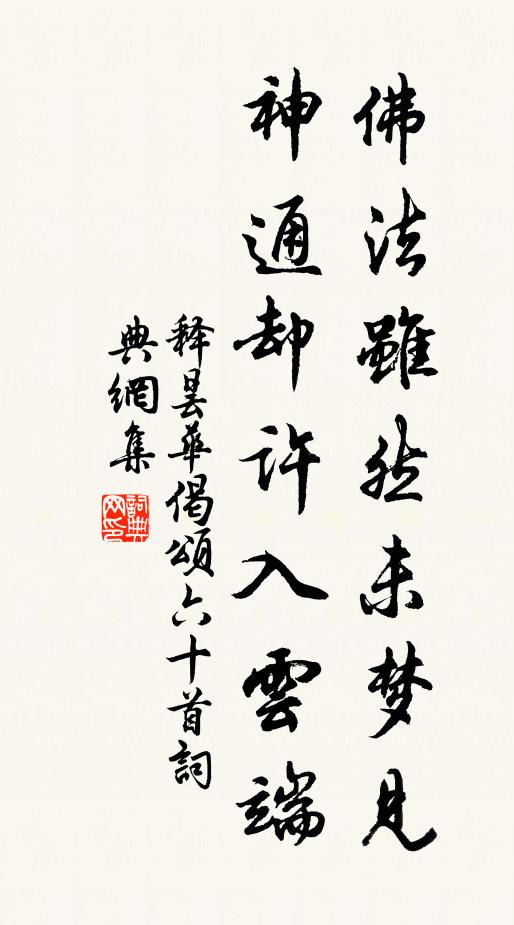 佛法雖然未梦見
神通却許入雲端
释曇華偈頌六十首詞
典網集
詞典
网印